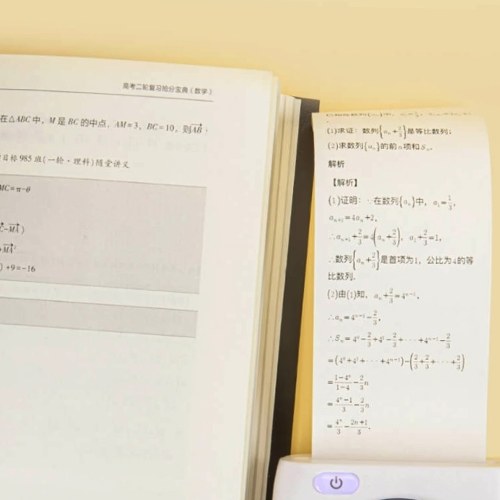 高考二轮复习抢分宝典(数学)
在△ABC中,M是BC的中点,AM=3,BC=10,则AB·
目标985班(一轮·理科)随堂讲义
MC=π-θ
C-MA)
+MA
)+9=-16
(1)求证:数列{aₙ+2/3}是等比数列;
(2)求数列{aₙ}的前n项和Sₙ.
解析
【解析】
(1)证明:∵在数列{aₙ}中,a₁=1/3,
aₙ₊₁=4aₙ+2,
∴aₙ₊₁+2/3=4(aₙ+2/3),a₁+2/3=1,
∴数列{aₙ+2/3}是首项为1,公比为4的等
比数列.
(2)由(1)知,aₙ+2/3=4ⁿ⁻¹,
∴aₙ=4ⁿ⁻¹-2/3,
∴Sₙ=4⁰-2/3+4¹-2/3+···+4ⁿ⁻¹-2/3
=(4⁰+4¹+···+4ⁿ⁻¹)-(2/3+2/3+···+2/3)
=(1-4ⁿ)/(1-4)-2/3n
=(4ⁿ-1)/3-2/3n
=4ⁿ/3-(2n+1)/3.